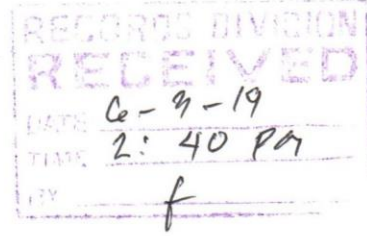 RECORDS DIVISION
RECEIVED
DATE 6-3-19
TIME 2:40 PM
BY f